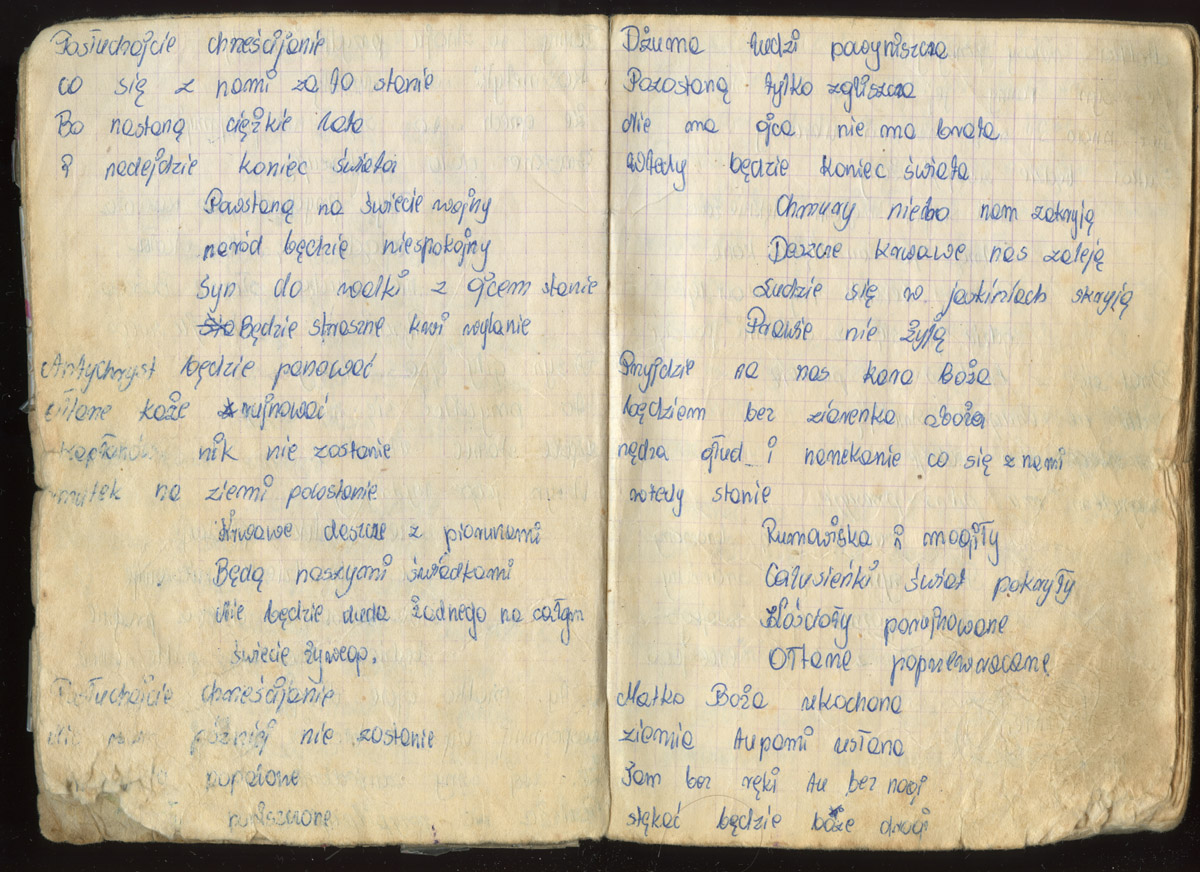 Posłuchajcie chrześcijanie
co się z nami za to stanie
Bo nastaną ciężkie lata
i nadejdzie koniec świata
Powstaną na świecie wojny
naród będzie niespokojny
Syn do walki z ojcem stanie
Będzie straszne krwi wylanie
Antychryst będzie panować
każe rujnować
kapłanów nik nie zostanie
smutek na ziemi powstanie
Krwawe deszcze z piorunami
Będą naszymi świadkami
nie będzie duda żadnego na całym
świecie żywego.
Posłuchajcie chrześcijanie
Nic nam później nie zostanie
popalone
poniszczone
Dżuma ludzi powyniszcza
Pozostaną tylko zgliszcza
Nie ma ojca nie ma brata
Wtedy będzie koniec świata
Chmury niebo nam zakryją
Deszcze krwawe nas zaleją
Ludzie się w jaskiniach skryją
Prawie nie żyją
Przyjdzie na nas kara Boża
będziem bez ziarenka zboża
nędza głud i narzekanie co się z nami
wtedy stanie
Rumowiska i mogiły
Calusieńki świat pokryły
Kościoły porujnowane
Ołtarze poprzewracane
Matko Boża ukochana
ziemia trupami usłana
Tam bez ręki tu bez nogi
stękać będzie boże drogi